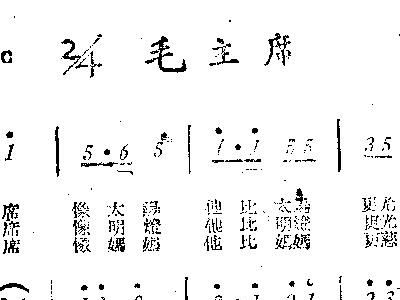 C 2/4 毛主席
1 | 5·6 5 | 1·1 55 | 35
席 像 太 陽 他 比 太 陽 更光
席 像 明 燈 他 比 明 燈 更光
席 像 媽 媽 他 比 媽 媽 更慈